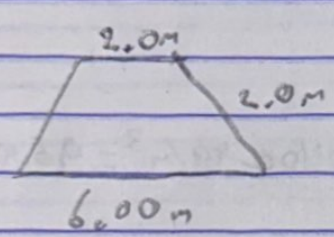 2.0m
2.0m
6.00m